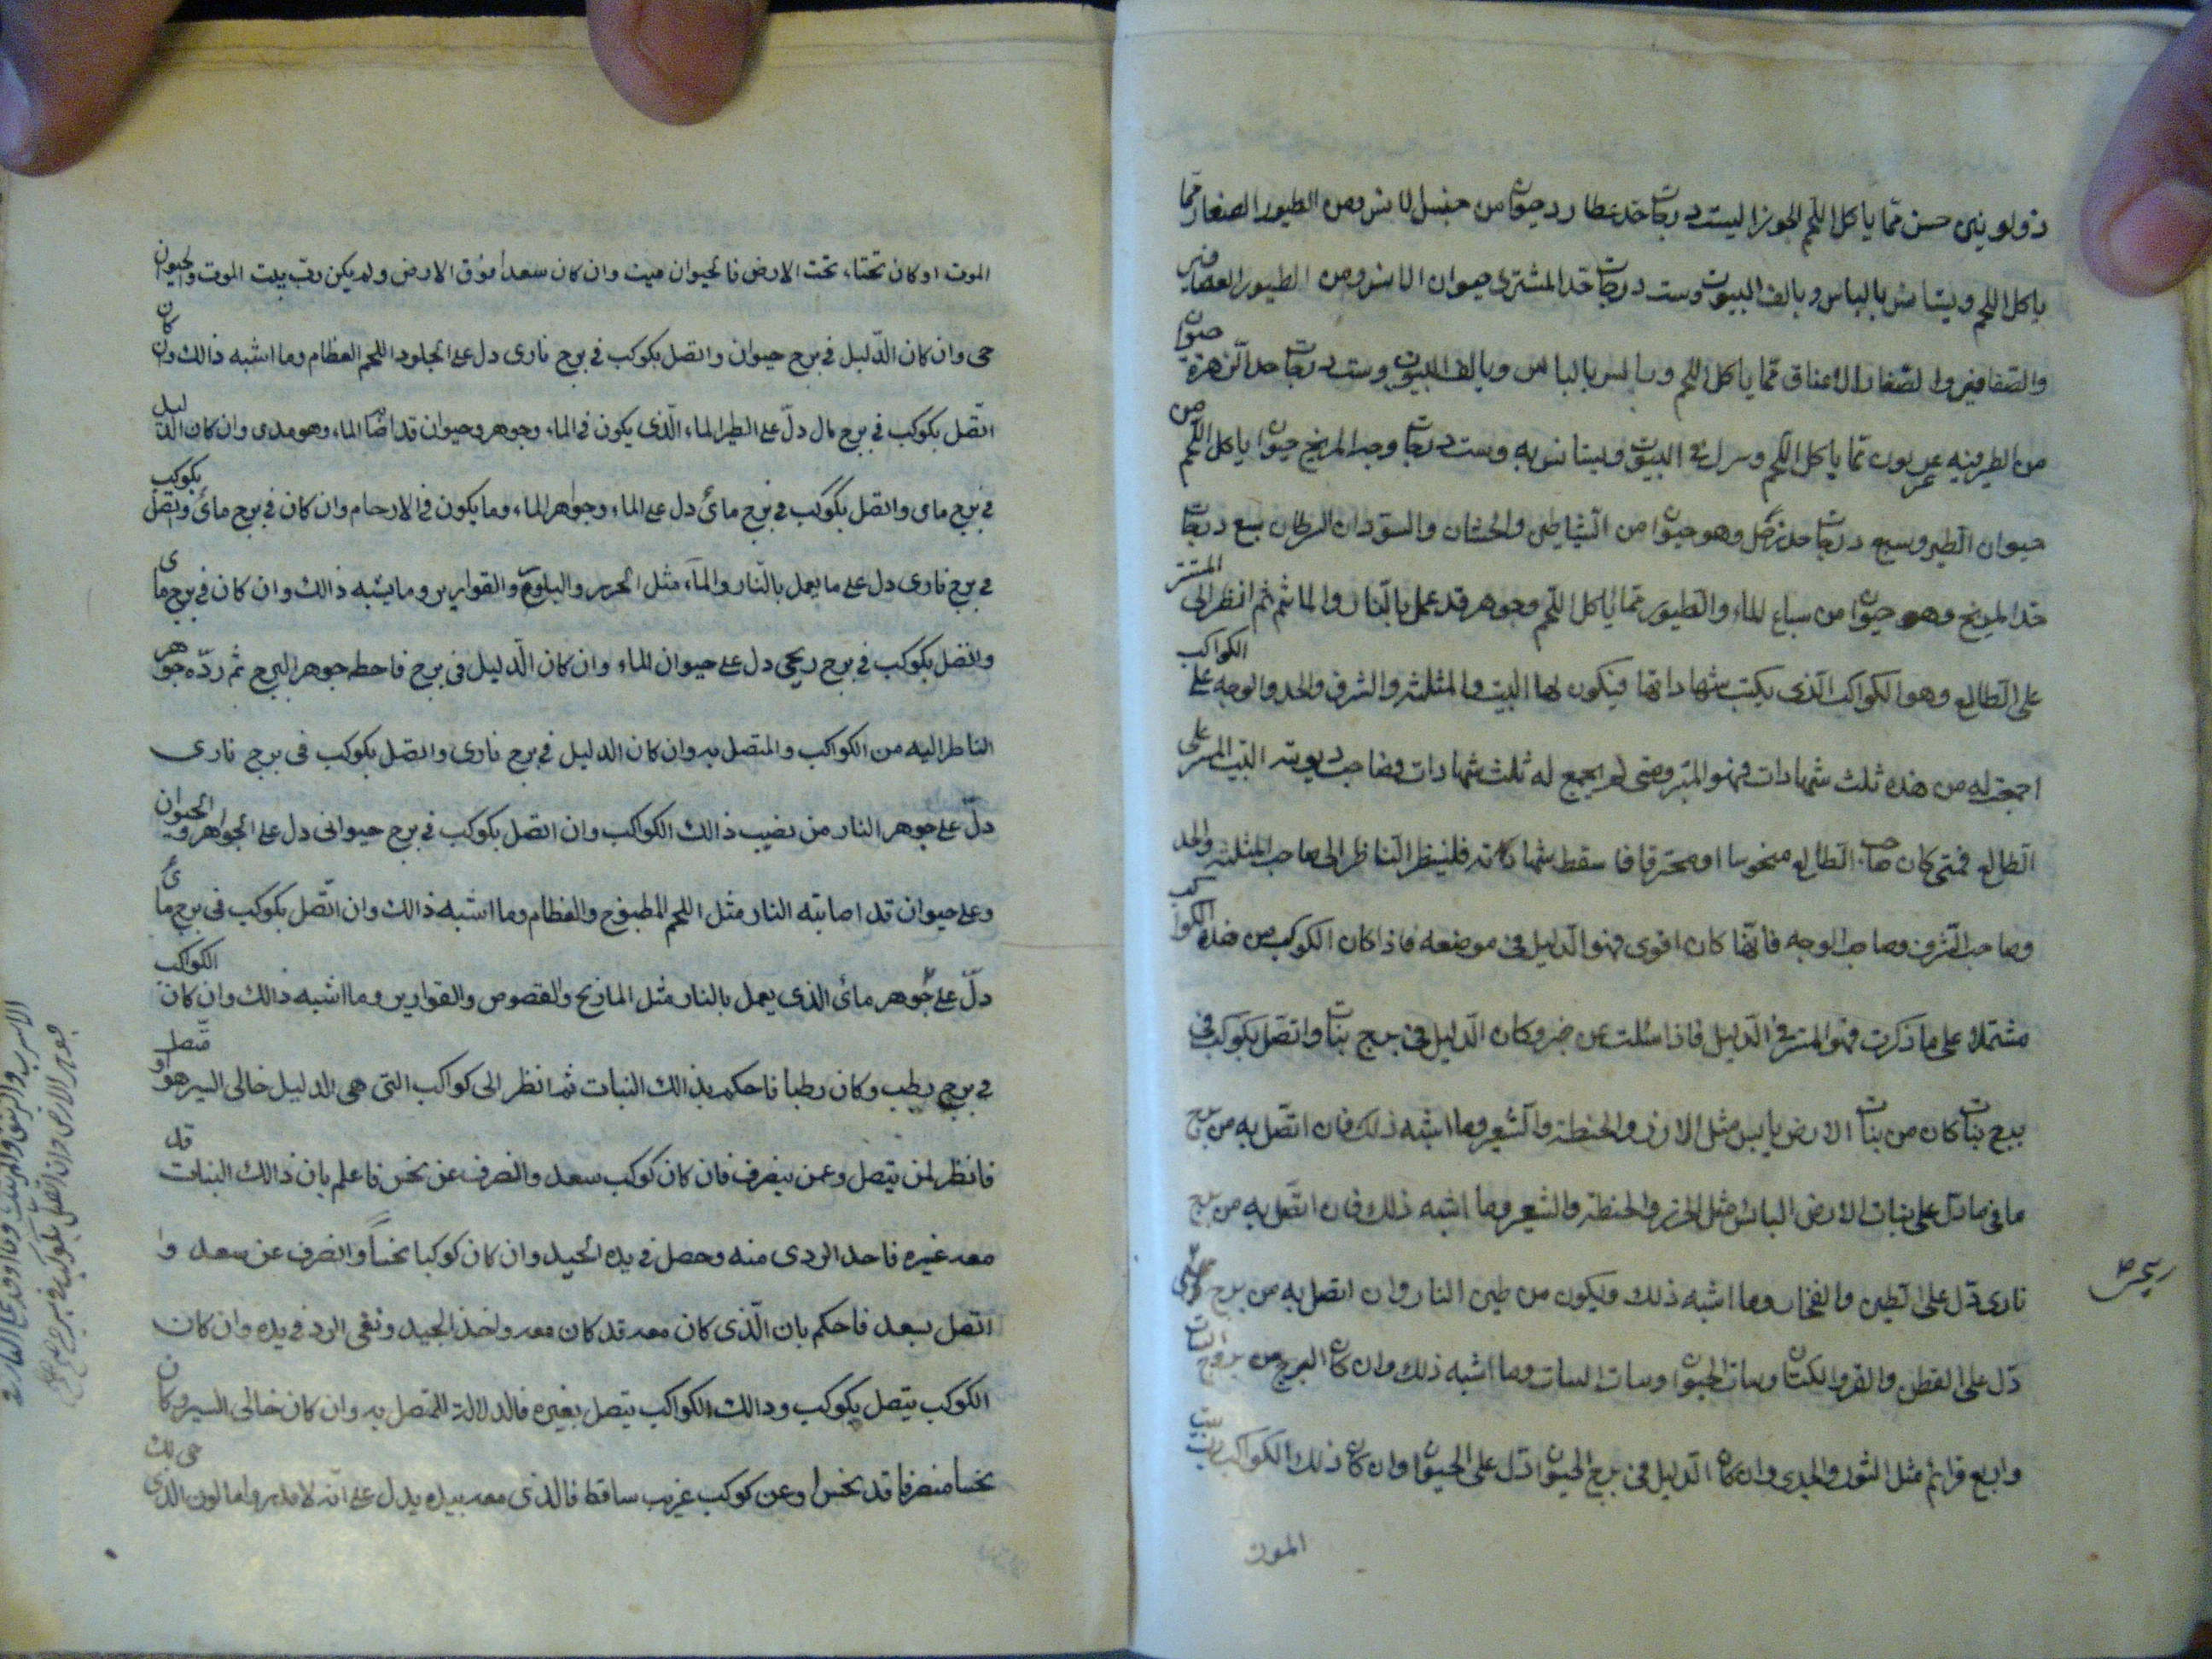 ذو لونين حسن مما ياكل اللحم الجوزا لست درجات حد عطارد حيوان من جنسل لانس ومن الطيور الصغار مما
ياكل اللحم ويستانس بالناس ويالف البيوت وست درجات حد المشترى حيوان الانس ومن الطيور العصافير
والصفافير والصغار الاعناق مما ياكل اللحم بالناس ويالف البيوت وست درجات حد الزهرة حيوان
من الطير فيه مما ياكل اللحم البيوت ويستانس به وست درجات وحد المريخ حيوان ياكل اللحم من
حيوان الطير وسبع درجات حد زحل وهو حيوان من الشياطين والسودان السرطان سبع درجات
حد المريخ وهو حيوان من سباع الماء والطيور مما ياكل اللحم وجوهر قد عمل بالنار والما ثم انظر الى المبتز
على الطالع وهو الكواكب الذى يكتب شهاداتها فيكون لها البيت والمثلثه والشرف والحد والوجه على الكواكب
اجتمعت له من هذه ثلث شهادات فهو المبتز ومتى لم يجمع له ثلث شهادات على
الطالع فمتى كان صاحب الطالع منحوسا او محترقا فاسقط شهاداته فلينظر الناظر الى صاحب المثلثه والحد
وصاحب الشرف وصاحب الوجه فايها كان اقوى فهو الدليل فى موضعه فاذا كان الكوكب من هذه الكواكب
مشتملا على ما ذكرت فهو المبتز فى الدليل فاذا سئلت عن خبر وكان الدليل فى برج نبات واتصل بكوكب فى
برج نبات كان من نبات الارض يابس مثل الارز والحنطة والشعير وما اشبه ذلك فان اتصل به من برج
مائى مادل على نبات الارض اليابس مثل الارز والحنطة والشعير وما اشبه ذلك فان اتصل به من برج
نارى دل على الطين والفخار وما اشبه ذلك ويكون من طين النار وان اتصل به من برج
ريحى
دل على القطن والقز والكتان ونبات الحيوان ونبات النبات وما اشبه ذلك وان كان البرج من بروج النبات
واربع قوايم مثل الثور والجدى وان كان الدليل فى برج الحيوان دل على الحيوان وان كان ذلك الكواكب رب بيت
الموت
الموت او كان تحتاء تحت الارض فالحيوان ميت وان كان سعدا فوق الارض ولم يكن رب بيت الموت والحيوان
حى وان كان الدليل فى برج حيوان واتصل بكوكب فى برج نارى دل على الجلود اللحم العظام وما اشبه ذالك وان كان
اتصل بكوكب فى برج مال دل على الطير الماء الذى يكون فى الماء وجوهر وحيوان قد اضا الماء وهو مدى وان كان الدليل
فى برج ماى واتصل بكوكب فى برج مائى دل على الماء وجواهر الماء وما يكون فى الارحام وان كان فى برج مائى واتصل بكوكب
فى برج نارى دل على ما يعمل بالنار والماء مثل الحرير والبلور والقوارير وما يشبه ذالك وان كان فى برج ماى
واتصل بكوكب فى برج ريحى دل على حيوان الماء وان كان الدليل فى برج فاحط جوهر البرج ثم رده جوهر
الناظر اليه من الكواكب والمتصل به وان كان الدليل فى برج نارى واتصل بكوكب فى برج نارى
دل على جوهر النار من نصيب ذالك الكواكب وان اتصل بكوكب فى برج حيوانى دل على الجواهر والحيوان
وعلى حيوان قد اصابته النار مثل اللحم المطبوخ والعظام وما اشبه ذالك وان اتصل بكوكب فى برج مائى
دل على جوهر مائى الذى يعمل بالنار مثل المازيح والفصوص والقوارير وما اشبه ذالك وان كان الكواكب
فى برج رطب وكان رطبا فاحكم بذالك النبات ثم انظر الى كواكب التى هى الدليل خالى السير هو او متصل
فانظر لمن يتصل وعمن ينصرف فان كان كوكب سعد وانصرف عن نحس فاعلم بان ذالك النبات قد
معه غيره فاحد الردى منه وحصل فى يده الجيد وان كان كوكبا نحسا وانصرف عن سعد وا
اتصل بسعد فاحكم بان الذى كان معه قد كان معه واخذ الجيد وبقى الرد فى يده وان كان
الكوكب يتصل بكوكب وذالك الكواكب يتصل بغيره فالدلالة للمتصل به وان كان خالى السير وكان
نحسا منصرفا قد نحس او عن كوكب غريب ساقط فالذى معه بيده يدل على انه لا واما لون الذى
جوهر الارض وان اتصل بكوكب فى برج
الاسرب والزيبق